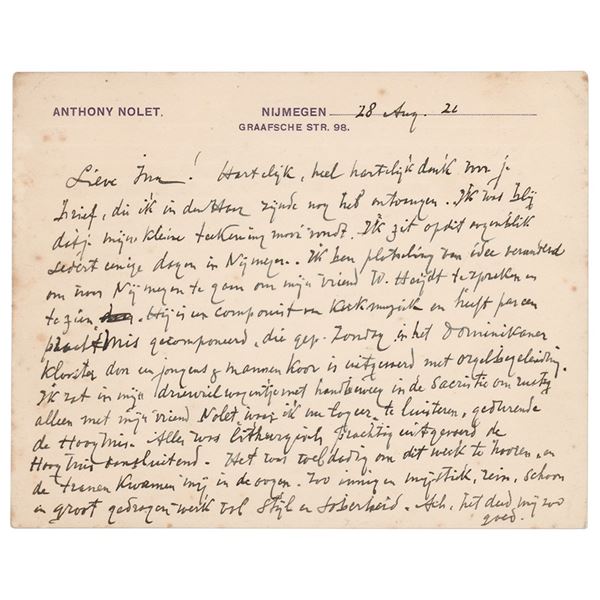 ANTHONY NOLET.
NIJMEGEN 28 Aug. 21
GRAAFSCHE STR. 98.
Lieve Ina! Hartelijk, heel hartelijk dank voor je
brief, die ik in den Haag zijnde nog heb ontvangen. Ik was blij
dat je mijn kleine teekening mooi vondt. Ik zit op dit oogenblik
sedert eenige dagen in Nijmegen. Ik ben plotseling van idee veranderd
om naar Nijmegen te gaan om mijn vriend W. Heydt te spreken en
te zien. Hij is een componist van Kerkmuziek en heeft pas een
pracht mis gecomponeerd, die gep. Zondag in het Dominikaner
Klooster door een jongens & mannen Koor is uitgevoerd met orgelbegeleiding.
Ik zat in mijn driewielwagentje met handbeweeg in de Sacristie om rustig
alleen met mijn vriend Nolet, waar ik nu logeer te luisteren, gedurende
de Hoogmis. Alles was lithurgisch prachtig uitgevoerd de
Hoogmis aansluitend. Het was weldadig om dit werk te hooren, en
de tranen kwamen mij in de oogen. Zoo innig en mystiek, rein, schoon
en groot gedragen werk vol Stijl en Soberheid. Ach, het deed mij zoo
goed.